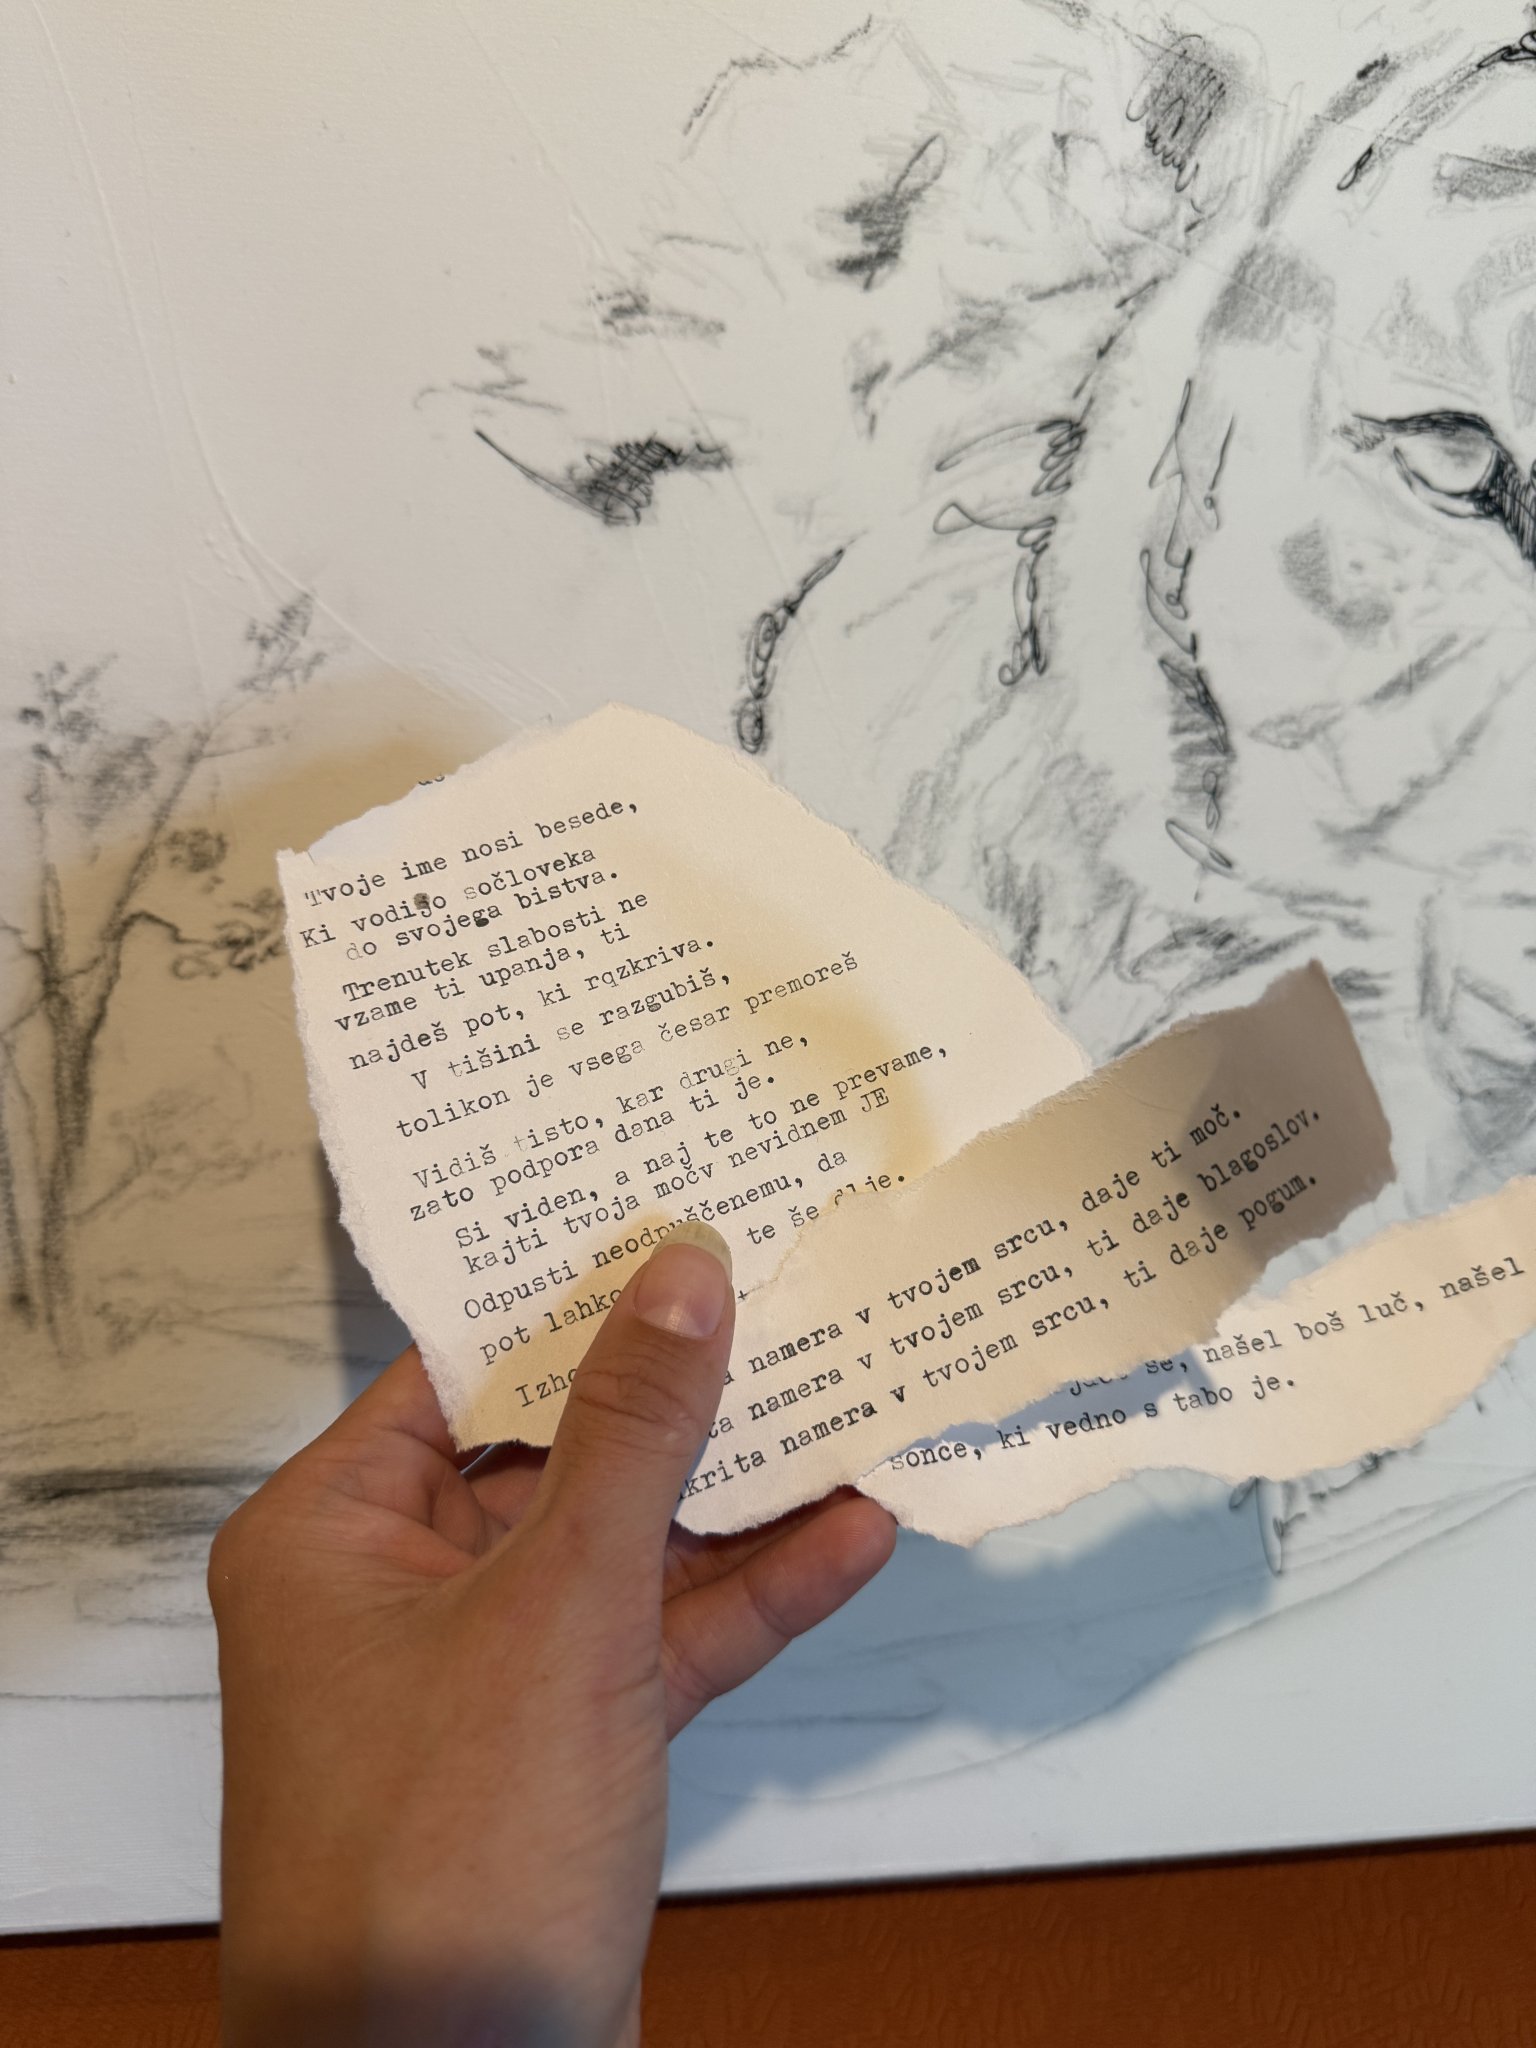 Tvoje ime nosi besede,
Ki vodijo sočloveka
do svojega bistva.
Trenutek slabosti ne
vzame ti upanja, ti
najdeš pot, ki rqzkriva.
V tišini se razgubiš,
tolikon je vsega česar premoreš
Vidiš tisto, kar drugi ne,
zato podpora dana ti je.
Si viden, a naj te to ne prevame,
kajti tvoja močv nevidnem JE
Odpusti neodpuščenemu, da
pot te še
namera v tvojem srcu, daje ti moč.
namera v tvojem srcu, ti daje blagoslov.
namera v tvojem srcu, ti daje pogum.
našel boš luč, našel
sonce, ki vedno s tabo je.